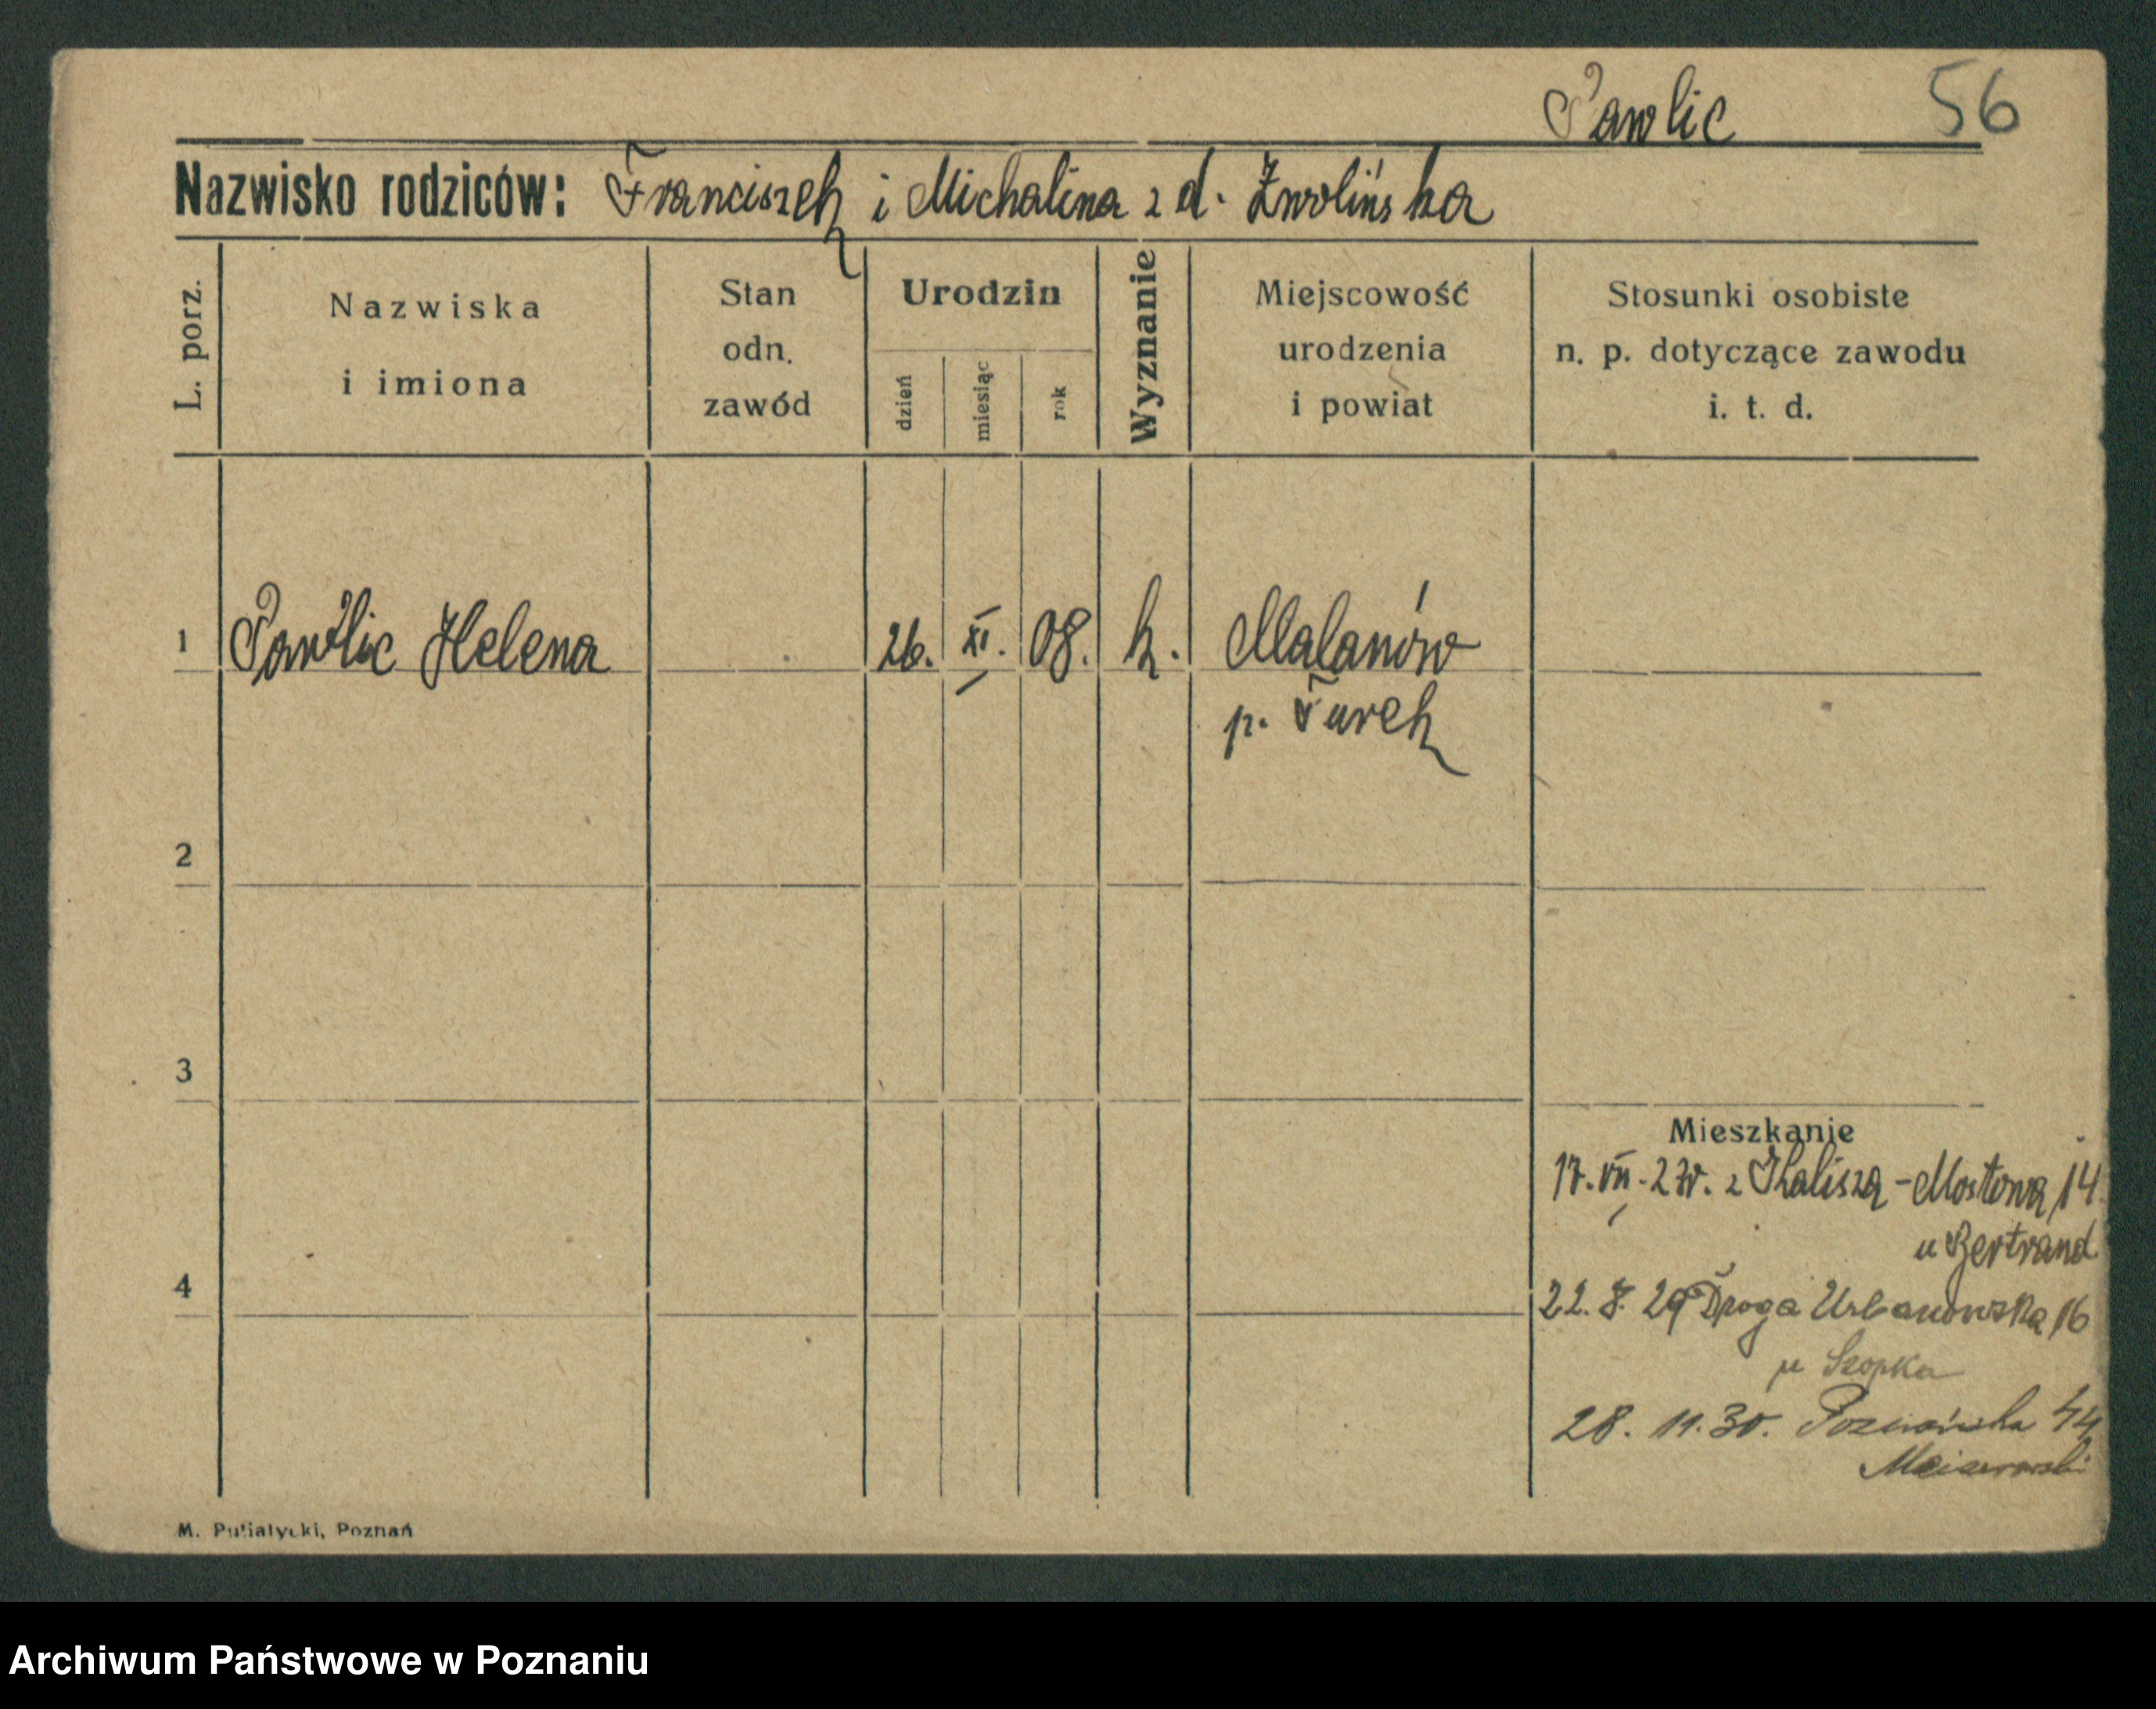 Pawlic 56
Nazwisko rodziców: Franciszek i Michalina z d. Zwolińska
L. porz.
Nazwiska i imiona
Stan odn. zawód
Urodzin
dzień
miesiąc
rok
Wyznanie
Miejscowość urodzenia i powiat
Stosunki osobiste n. p. dotyczące zawodu i. t. d.
1 Pawlic Helena 26. XI. 08. k. Malanów
p. Turek
2
3
Mieszkanie
17. VII. 27r. z Kalisza - Mostowa 14
u Bertrand
4
22. 8. 29 Droga Urbanowska 16
u Szopka
28. 11. 30. Poznańska 44
M. Putiatycki, Poznań
Archiwum Państwowe w Poznaniu